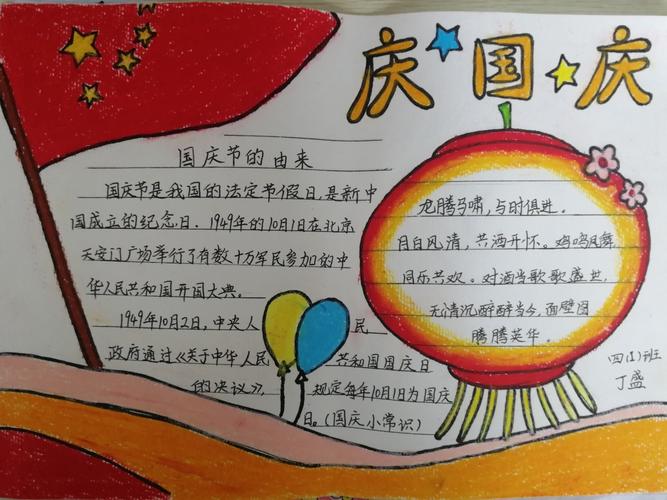 庆国庆
国庆节的由来
国庆节是我国的法定节假日,是新中
国成立的纪念日.1949年的10月1日在北京
天安门广场举行了有数十万军民参加的中
华人民共和国开国大典。
1949年10月2日,中央人民
政府通过《关于中华人民共和国国庆日
的决议》,规定每年10月1日为国庆
日。(国庆小常识)
龙腾马啸,与时俱进.
月白风清,共洒开怀。鸡鸣凤舞
同乐共欢。对酒当歌歌盛世,
无情沉醉醉当今,面壁图
腾腾英华.
四(1)班
丁盛